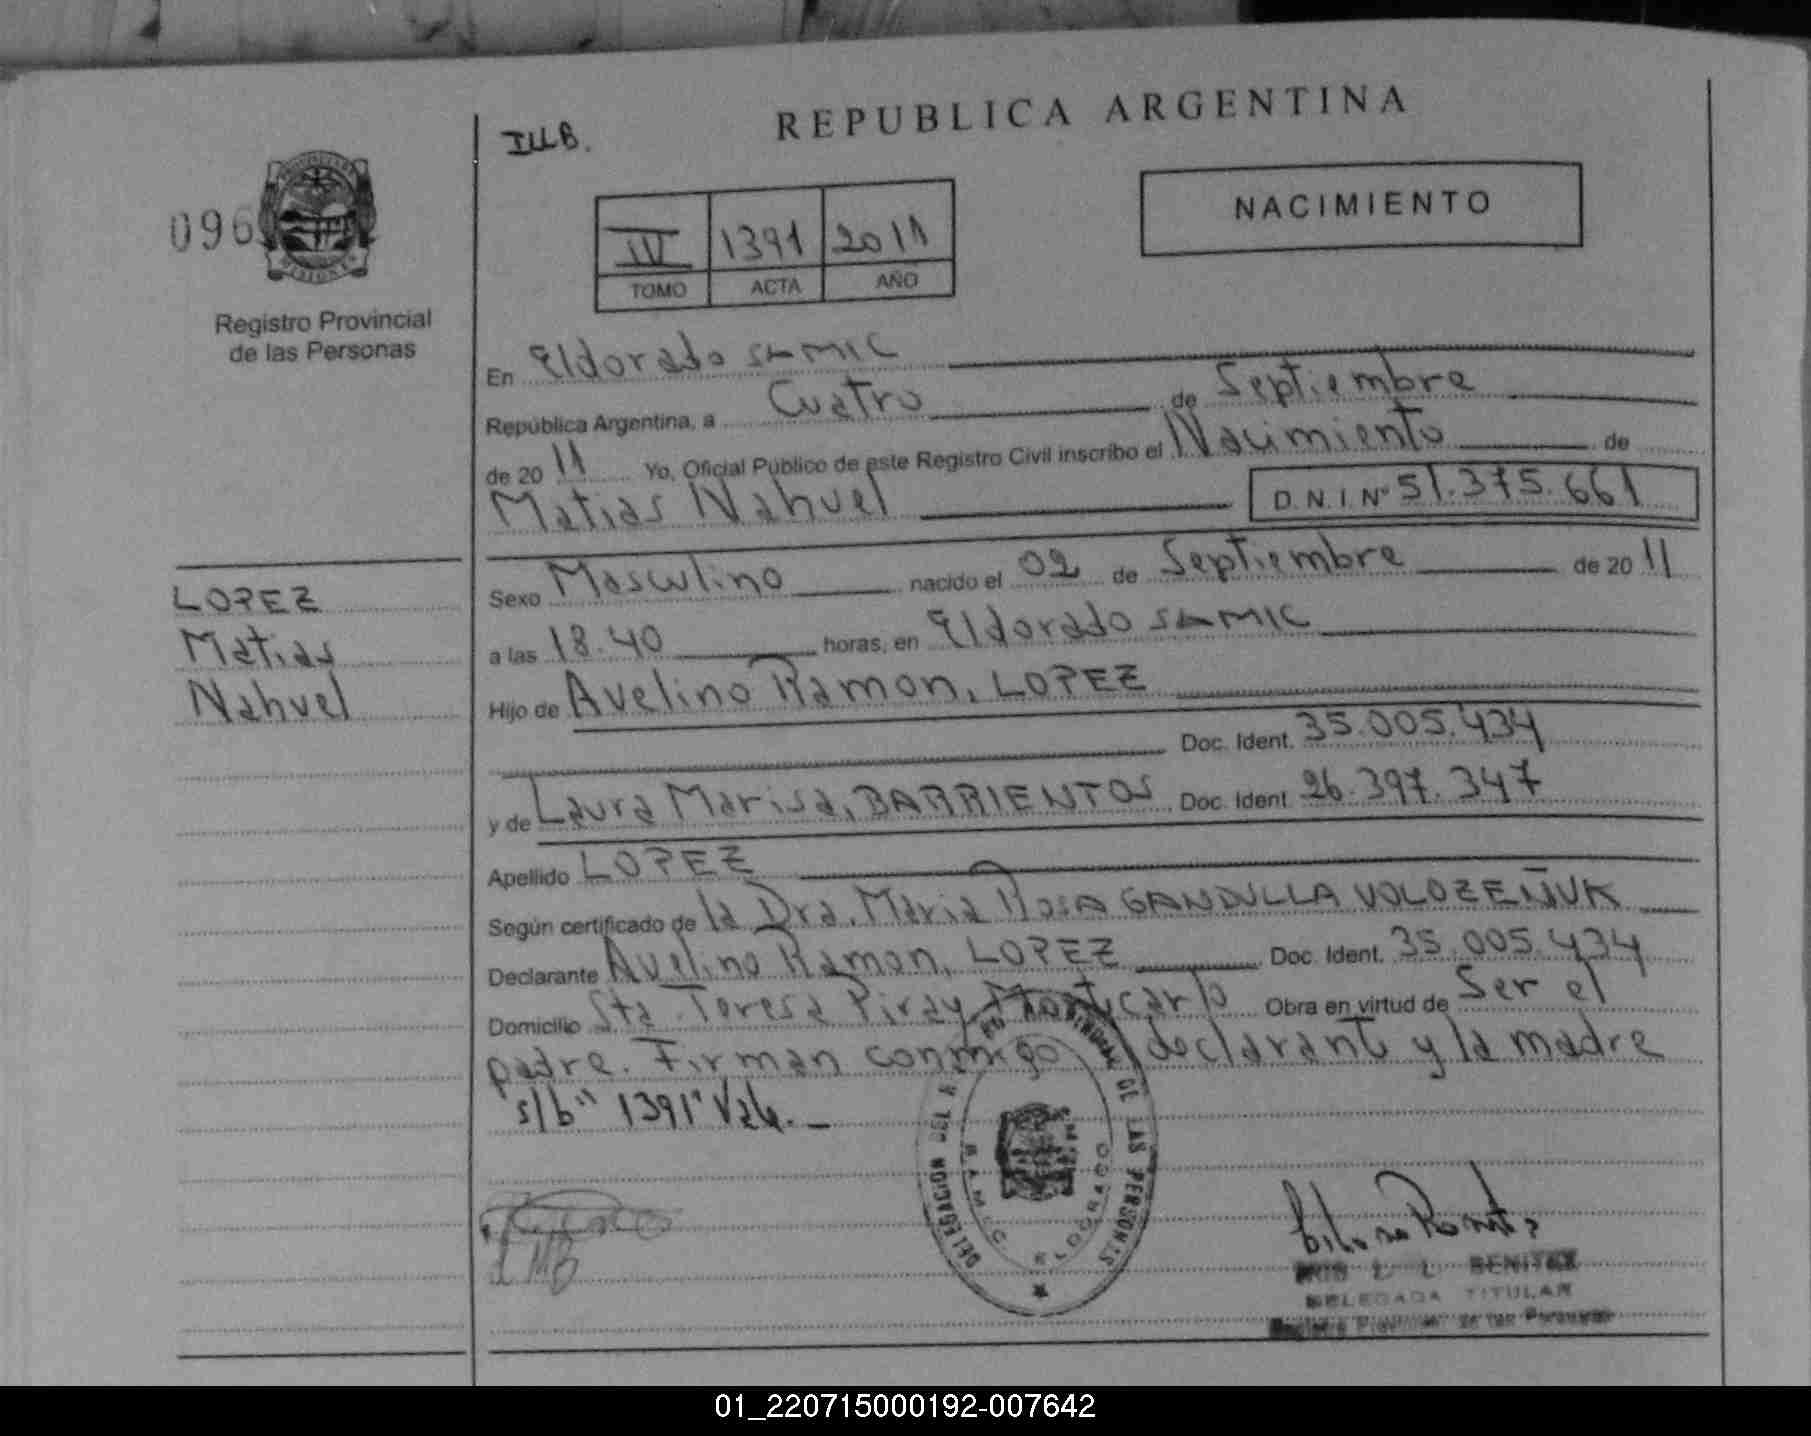 REPUBLICA ARGENTINA
ILLB.
NACIMIENTO
096
IV 1391 2011
TOMO ACTA AÑO
Registro Provincial
de las Personas
En Eldorado SAMIC
República Argentina, a Cuatro de Septiembre
de 20 11 Yo, Oficial Público de este Registro Civil inscribo el Nacimiento de
Matias Nahuel D.N.I. Nº 51.375.661
Sexo Masculino nacido el 02 de Septiembre de 20 11
a las 18.40 horas, en Eldorado SAMIC
Hijo de Avelino Ramon, LOPEZ
Doc. Ident. 35.005.434
y de Laura Marisa, BARRIENTOS Doc. Ident. 26.397.347
Apellido LOPEZ
Según certificado de la Dra. Maria Rosa GANDULLA VOLOZEÑUK
Declarante Avelino Ramon, LOPEZ Doc. Ident. 35.005.434
Domicilio Sta. Teresa Piray Montecarlo Obra en virtud de Ser el
padre. Firman conmigo declarante y la madre
"s/b" 1391" Vale.
LOPEZ
Matias
Nahuel
DELEGACION DEL DE LAS PERSONAS
SAMIC ELDORADO
LMB
BENITEZ
DELEGADA TITULAR
Registro Provincial de las Personas
01_220715000192-007642